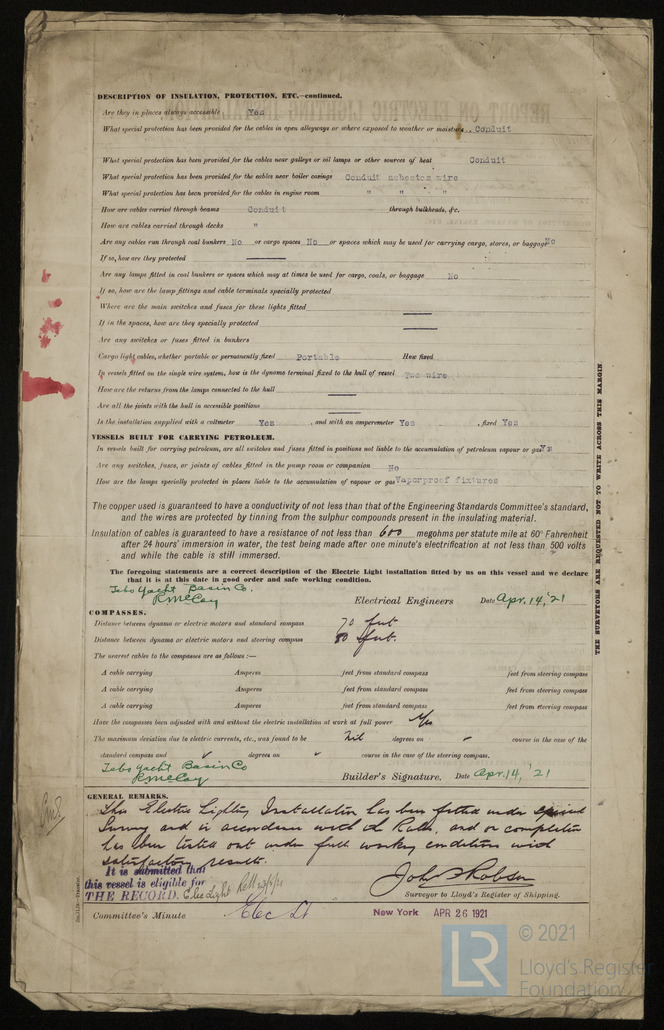 DESCRIPTION OF INSULATION, PROTECTION, ETC.—continued.
Are they in places always accessible Yes
What special protection has been provided for the cables in open alleyways or where exposed to weather or moisture Conduit
What special protection has been provided for the cables near galleys or oil lamps or other sources of heat Conduit
What special protection has been provided for the cables near boiler casings Conduit asbestos wire
What special protection has been provided for the cables in engine room " " "
How are cables carried through beams Conduit through bulkheads, &c.
How are cables carried through decks "
Are any cables run through coal bunkers No or cargo spaces No or spaces which may be used for carrying cargo, stores, or baggage No
If so, how are they protected
Are any lamps fitted in coal bunkers or spaces which may at times be used for cargo, coals, or baggage No
If so, how are the lamp fittings and cable terminals specially protected
Where are the main switches and fuses for these lights fitted
If in the spaces, how are they specially protected
Are any switches or fuses fitted in bunkers
Cargo light cables, whether portable or permanently fixed Portable How fixed
In vessels fitted on the single wire system, how is the dynamo terminal fixed to the hull of vessel Two wire
How are the returns from the lamps connected to the hull
Are all the joints with the hull in accessible positions
Is the installation supplied with a voltmeter Yes , and with an amperemeter Yes , fixed Yes
VESSELS BUILT FOR CARRYING PETROLEUM.
In vessels built for carrying petroleum, are all switches and fuses fitted in positions not liable to the accumulation of petroleum vapour or gas
Are any switches, fuses, or joints of cables fitted in the pump room or companion No
How are the lamps specially protected in places liable to the accumulation of vapour or gas Vaporproof fixtures
The copper used is guaranteed to have a conductivity of not less than that of the Engineering Standards Committee's standard,
and the wires are protected by tinning from the sulphur compounds present in the insulating material.
Insulation of cables is guaranteed to have a resistance of not less than 600 megohms per statute mile at 60° Fahrenheit
after 24 hours' immersion in water, the test being made after one minute's electrification at not less than 500 volts
and while the cable is still immersed.
The foregoing statements are a correct description of the Electric Light installation fitted by us on this vessel and we declare
that it is at this date in good order and safe working condition.
Tebo Yacht Basin Co.
R McCoy Electrical Engineers Date Apr. 14, '21
COMPASSES.
Distance between dynamo or electric motors and standard compass 70 feet
Distance between dynamo or electric motors and steering compass feet.
The nearest cables to the compasses are as follows:—
A cable carrying Amperes feet from standard compass feet from steering compass
A cable carrying Amperes feet from standard compass feet from steering compass
A cable carrying Amperes feet from standard compass feet from steering compass
Have the compasses been adjusted with and without the electric installation at work at full power Yes
The maximum deviation due to electric currents, etc., was found to be Nil degrees on course in the case of the
standard compass and degrees on course in the case of the steering compass.
Tebo Yacht Basin Co
R McCoy Builder's Signature. Date Apr. 14, '21
GENERAL REMARKS.
This Electric Lighting Installation has been fitted under special
Survey and in accordance with the Rules, and on completion
has been tested out under full working conditions with
satisfactory results.
It is submitted that
this vessel is eligible for
THE RECORD. Elec Light
John S Robson
Surveyor to Lloyd's Register of Shipping.
Committee's Minute Elec Lt New York APR 26 1921
THE SURVEYORS ARE REQUESTED NOT TO WRITE ACROSS THIS MARGIN
LR
© 2021
Lloyd's Register
Foundation